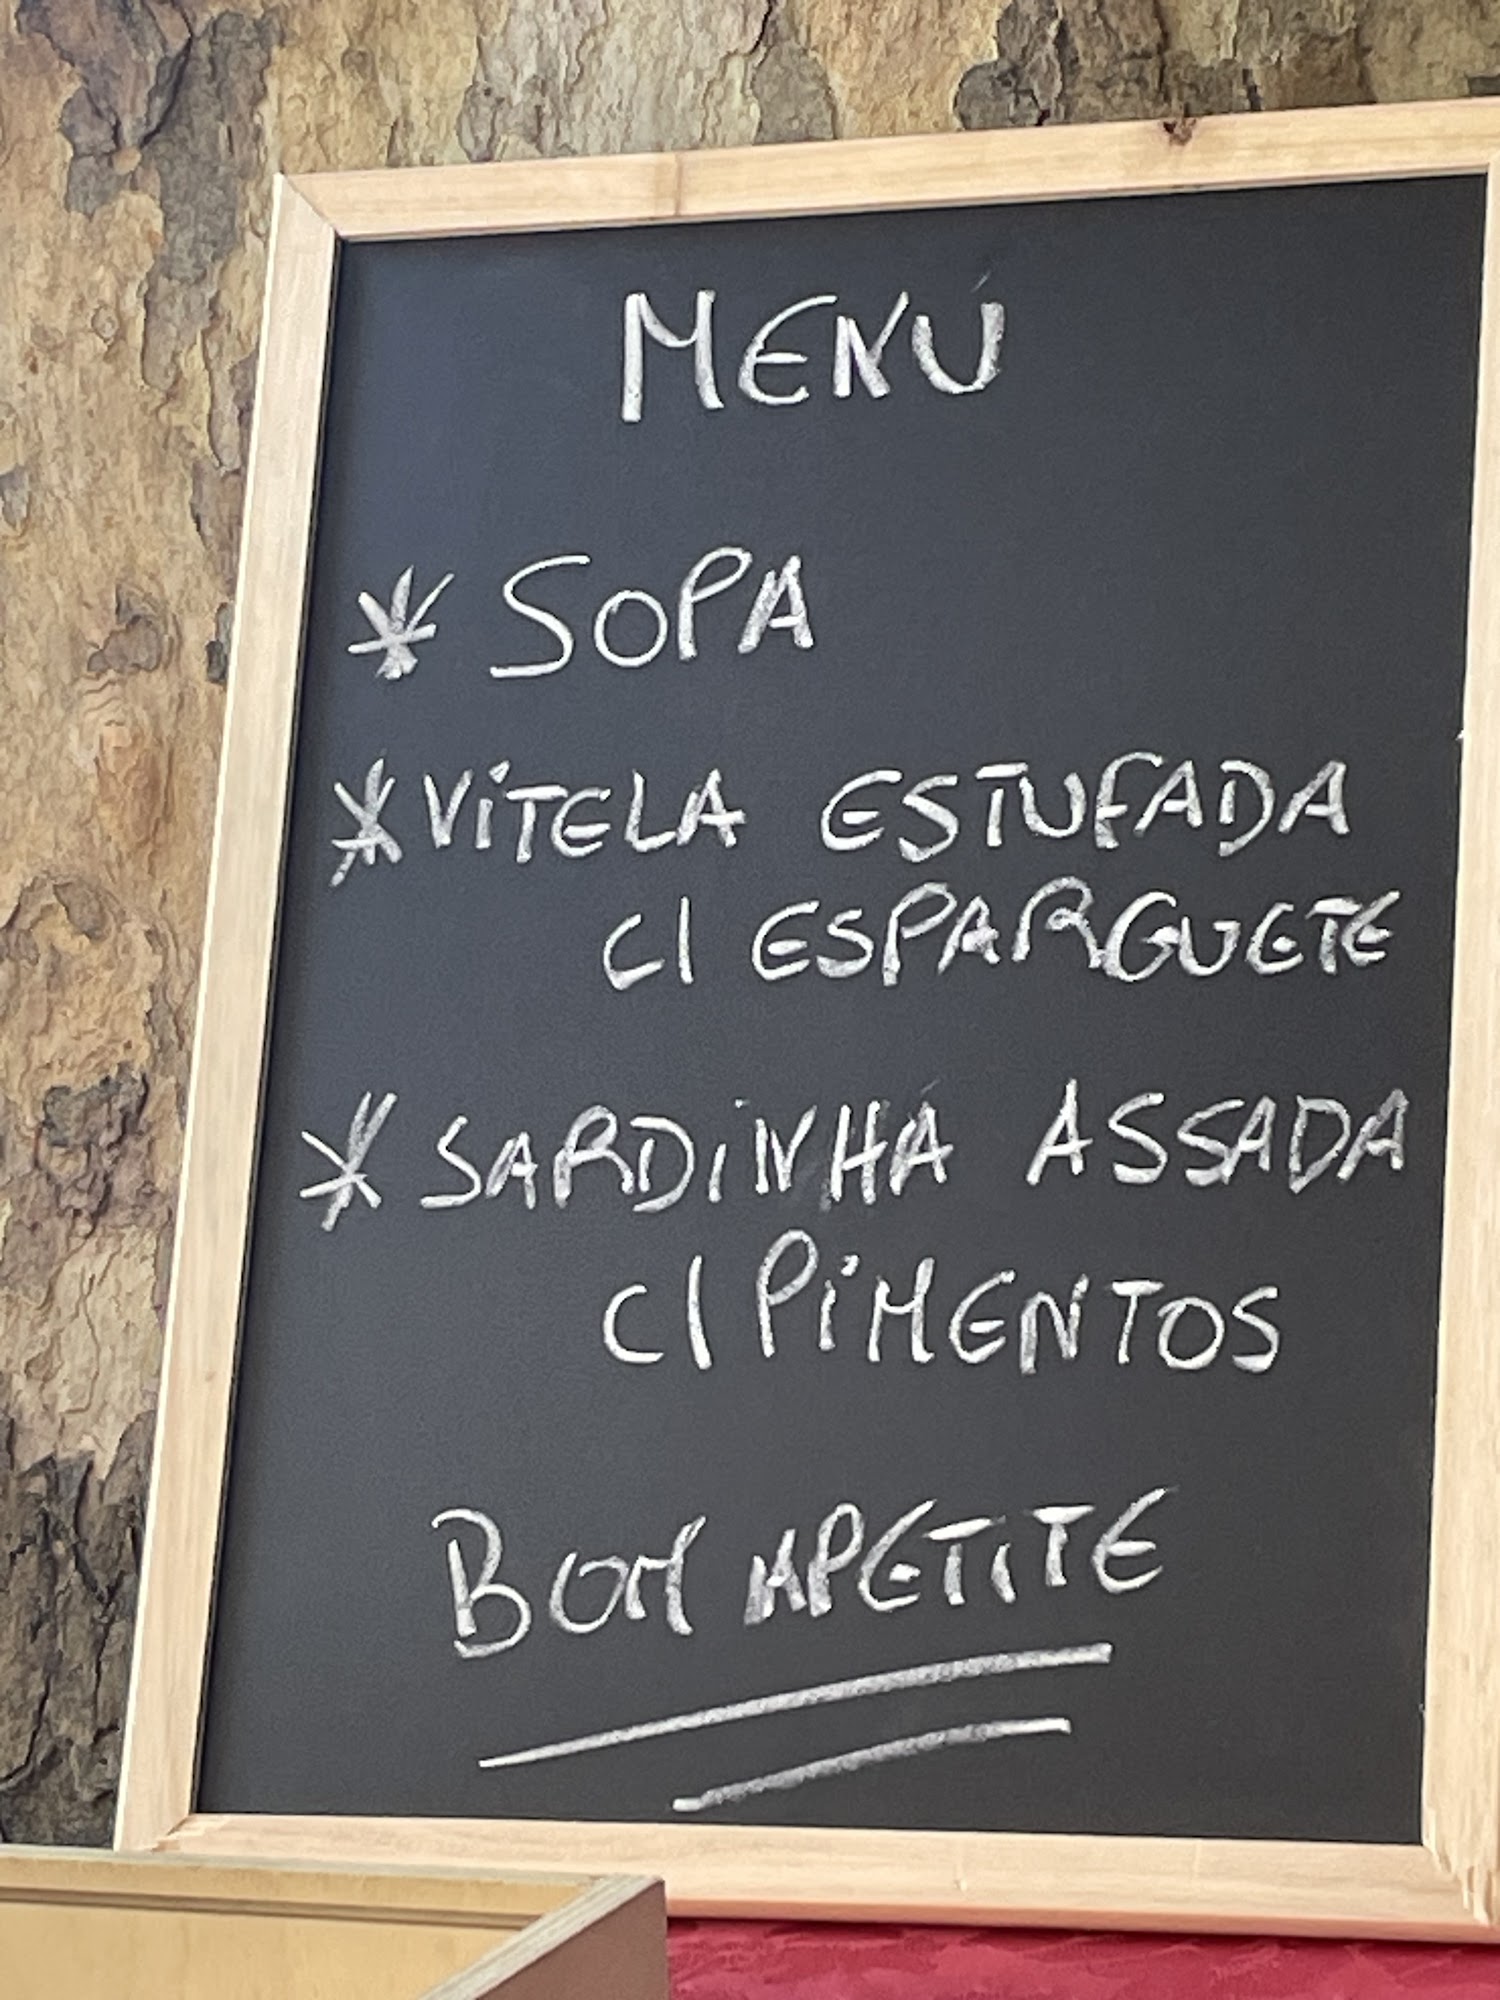 MENU
* SOPA
* VITELA ESTUFADA
C/ ESPARGUETE
* SARDINHA ASSADA
C/ PIMENTOS
BOM APETITE